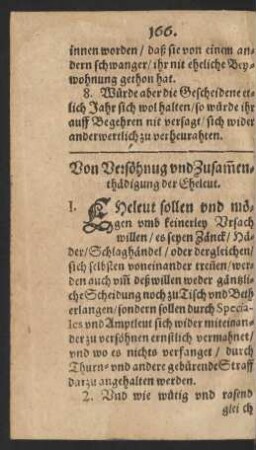 166.
innen worden / daß sie von einem an-
dern schwanger / ihr nit eheliche Bey-
wohnung gethon hat.
8. Würde aber die Gescheidene et-
lich Jahr sich wol halten / so würde ihr
auff Begehren nit versagt / sich wider
anderwertlich zu verheurahten.
Von Versöhnug vnd Zusam̃en-
thädigung der Eheleut.
I. EHeleut sollen vnd mö-
gen vmb keinerley Vrsach
willen / es seyen Zänck / Hä-
der / Schlaghändel / oder dergleichen /
sich selbsten voneinander treñen / wer-
den auch vm̃ deß willen weder gäntzli-
che Scheidung noch zu Tisch vnd Beth
erlangen / sondern sollen durch Specia-
les vnd Amptleut sich wider miteinan-
der zu versöhnen ernstlich vermahnet /
vnd wo es nichts verfanget / durch
Thurn- vnd andere gebürende Straff
darzu angehalten werden.
2. Vnd wie wütig vnd rasend
gleich